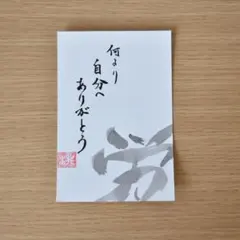 何より
自分へ
ありがとう
労